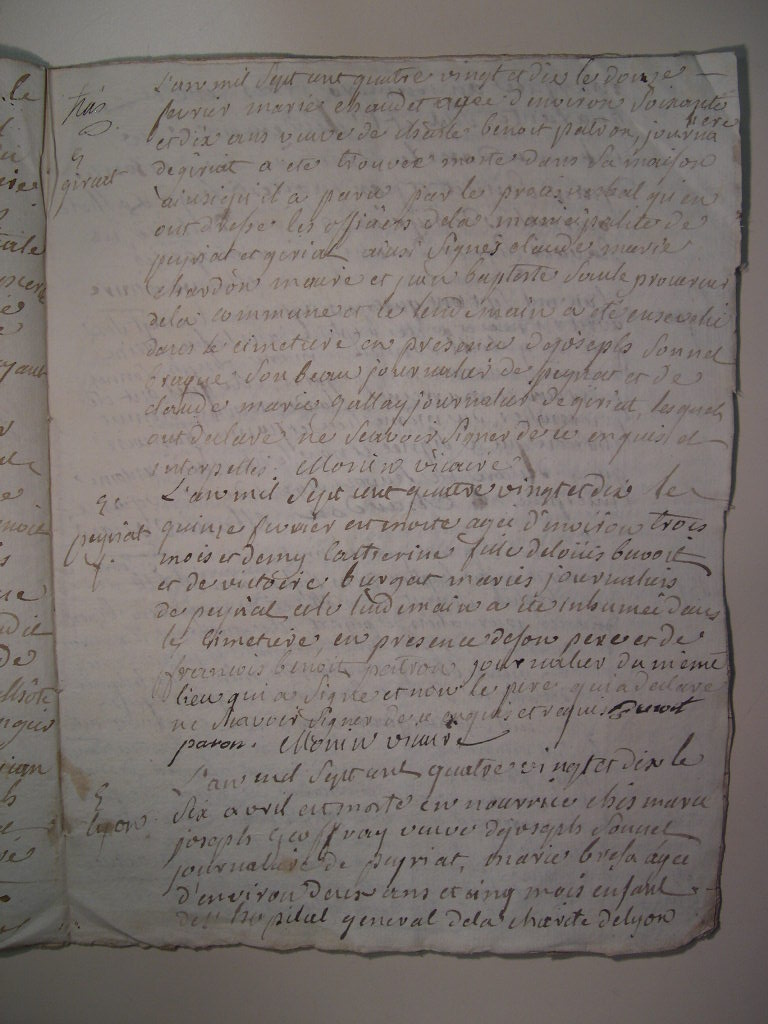 L'an mil sept cent quatre vingt et dix le douze
fevrier marie chaudet agée d'environ soixante
et dix ans veuve de charle benoit patron, journaliere
de giriat a ete trouvee morte dans sa maison
ainsi qu'il a paru par le proces verbal qu'en
ont dresse les officiers de la municipalite de
peyriat et giriat ainsi signés claude marie
chardon maire et jean baptiste procureur
de la commune et le lendemain a été enseveli
dans le cimetiere en presence de joseph sonnet
son beau journalier de peyriat et de
claude marie gallay journalier de giriat, lesquels
ont declare ne scavoir signer de ce enquis et
interpelles. Monin vicaire
giriat
L'an mil sept cent quatre vingt et dix le
quinze fevrier est morte agee d'environ trois
mois et demy Catherine fille de loüis benoit
et de victoire burgat mariés journaliers
de peyriat et le lendemain a été inhumée dans
le cimetiere, en presence de son pere et de
francois benoit patron journalier du même
lieu qui a signe et non le pere qui a declare
ne scavoir signer de ce enquis et requis benoit
paron. Monin vicaire
peyriat
L'an mil sept cent quatre vingt et dix le
six avril est morte en nourrice chés marie
joseph Geoffray veuve de joseph sonnet
journaliere de peyriat, marie agée
d'environ deux ans et cinq mois enfant
de l'hopital general de la charite de lyon
lyon